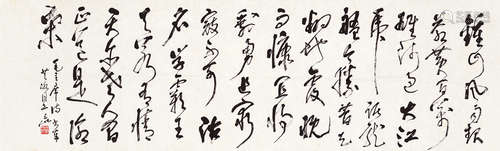 鍾山風雨起
蒼黃百萬
雄師過大江
虎踞龍
盤今勝昔天
翻地覆慨
而慷宜將
剩勇追窮
寇不可沽
名學霸王
天若有情
天亦老人間
正道是滄
桑
毛主席詩